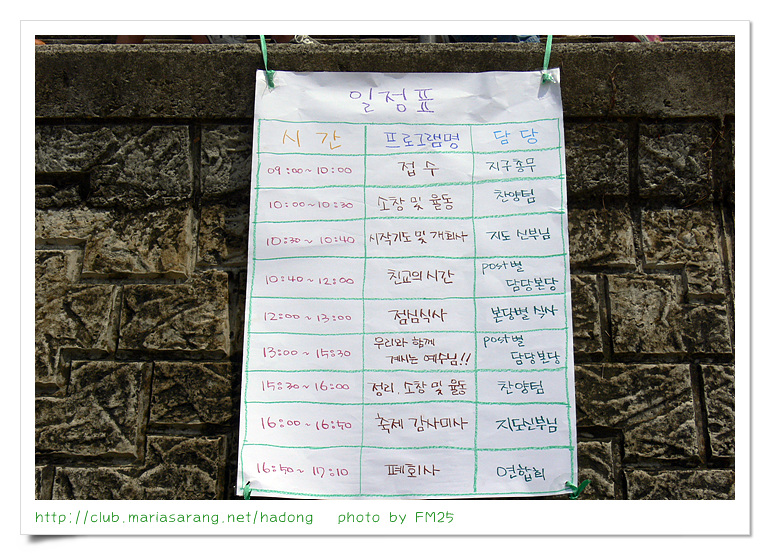 일정표
시간 프로그램명 담당
09:00~10:00 접수 지구총무
10:00~10:30 소창 및 율동 찬양팀
10:30~10:40 시작기도 및 개회사 지도 신부님
10:40~12:00 친교의 시간 post별
담당본당
12:00~13:00 점심식사 본당별 식사
13:00~15:30 우리와 함께 post별
계시는 예수님!! 담당본당
15:30~16:00 정리, 소창 및 율동 찬양팀
16:00~16:50 축제 감사미사 지도신부님
16:50~17:10 폐회사 연합회
http://club.mariasarang.net/hadong photo by FM25